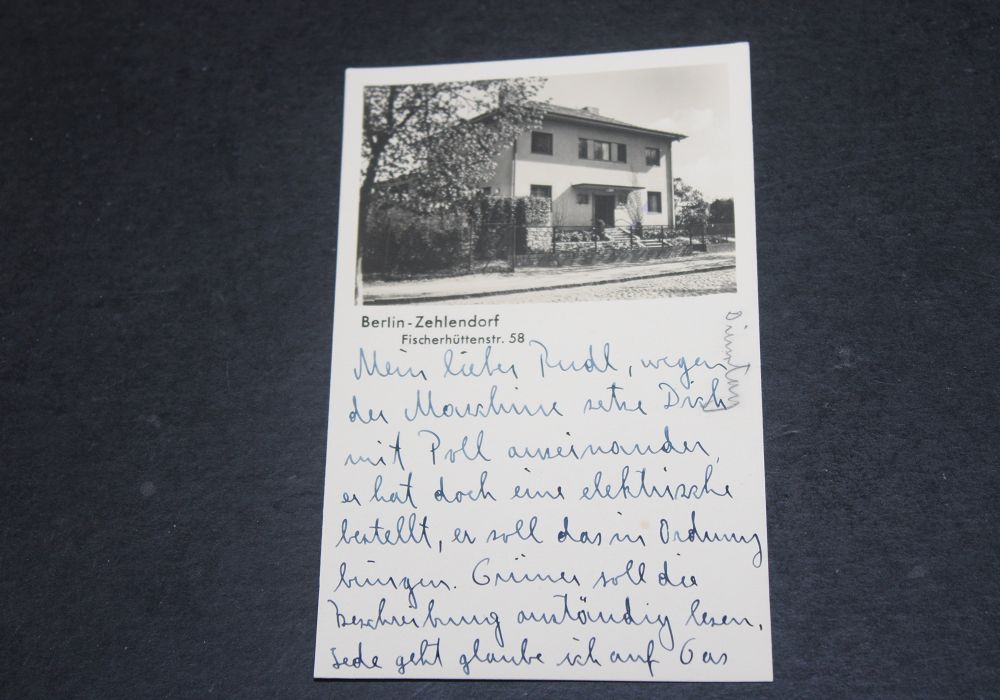 Berlin-Zehlendorf
Fischerhüttenstr. 58
Mein lieber Rudl, wegen
der Maschine setze Dich
mit Poll auseinander,
er hat doch eine elektrische
bestellt, er soll das in Ordnung
bringen. Grüner soll die
Beschreibung anständig lesen.
Jede geht glaube ich auf Gas